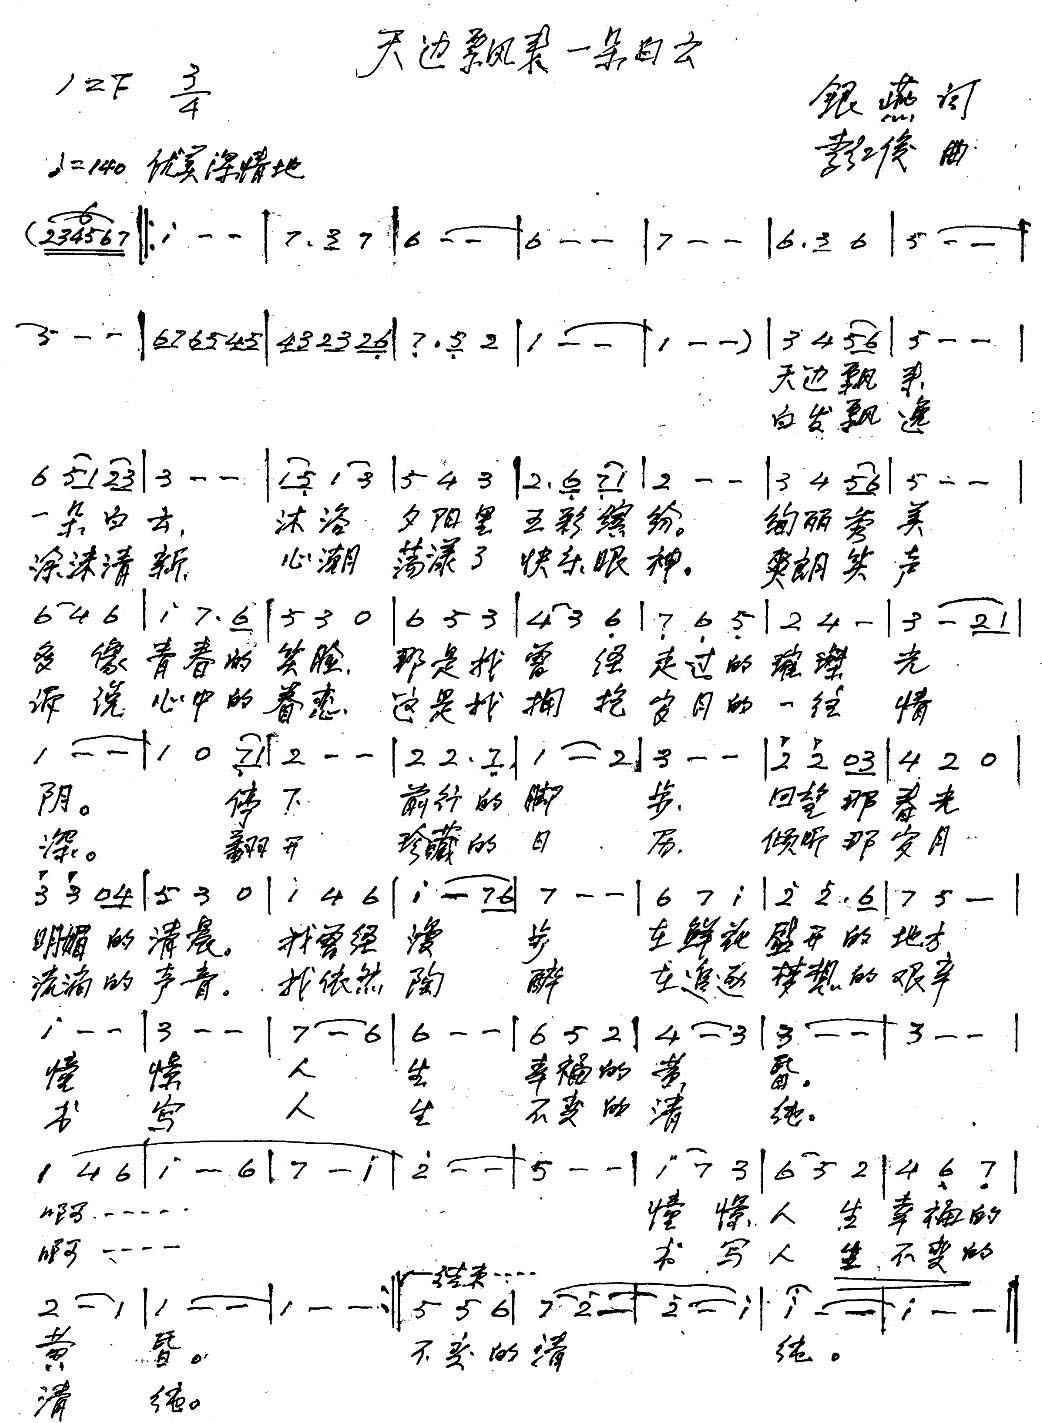 天边飘来一朵白云
1=F 3/4
银燕 词
李红俊 曲
♩=140 优美深情地
(234567 ‖: i - - | 7. 3 7 | 6 - - | 6 - - | 7 - - | 6. 3 6 | 5 - - |
5 - - | 676545 | 432326 | 7. 5 2 | 1 - - | 1 - -) | 3 4 56 | 5 - - |
天边飘来
白发飘逸
6 51 23 | 3 - - | 15 1 3 | 5 4 3 | 2. 6 71 | 2 - - | 3 4 56 | 5 - - |
一朵白云, 沐浴夕阳里五彩缤纷。绚丽秀美
涂沫清新, 心潮荡漾了快乐眼神。爽朗笑声
6 4 6 | i 7. 6 | 5 3 0 | 6 5 3 | 4 3 6 | 7 6 5 | 2 4 - | 3 - 21 |
多像青春的笑脸, 那是我曾经走过的璀璨光
诉说心中的眷恋, 这是我拥抱岁月的一往情
1 - - | 1 0 71 | 2 - - | 2 2. 7 | 1 - 2 | 3 - - | 2 2 03 | 4 2 0 |
阴。 停下前行的脚步, 回望那春光
深。 翻开珍藏的日历, 倾听那岁月
3 3 04 | 5 3 0 | i 4 6 | i - 76 | 7 - - | 6 7 i | 2 2. 6 | 7 5 - |
明媚的清晨。我曾经漫步在鲜花盛开的地方
流淌的声音。我依然陶醉在追逐梦想的艰辛
i - - | 3 - - | 7 - 6 | 6 - - | 6 5 2 | 4 - 3 | 3 - - | 3 - - |
憧憬人生幸福的黄昏。
书写人生不变的清纯。
1 4 6 | i - 6 | 7 - i | 2 - - | 5 - - | i 7 3 | 6 5 2 | 4 6 7 |
啊······ 憧憬人生幸福的
啊···· 书写人生不变的
结束····
2 - 1 | 1 - - | 1 - - :‖ 5 5 6 | 7 2 - | 2 - i | i - - | i - - ‖
黄昏。 不变的清纯。
清纯。